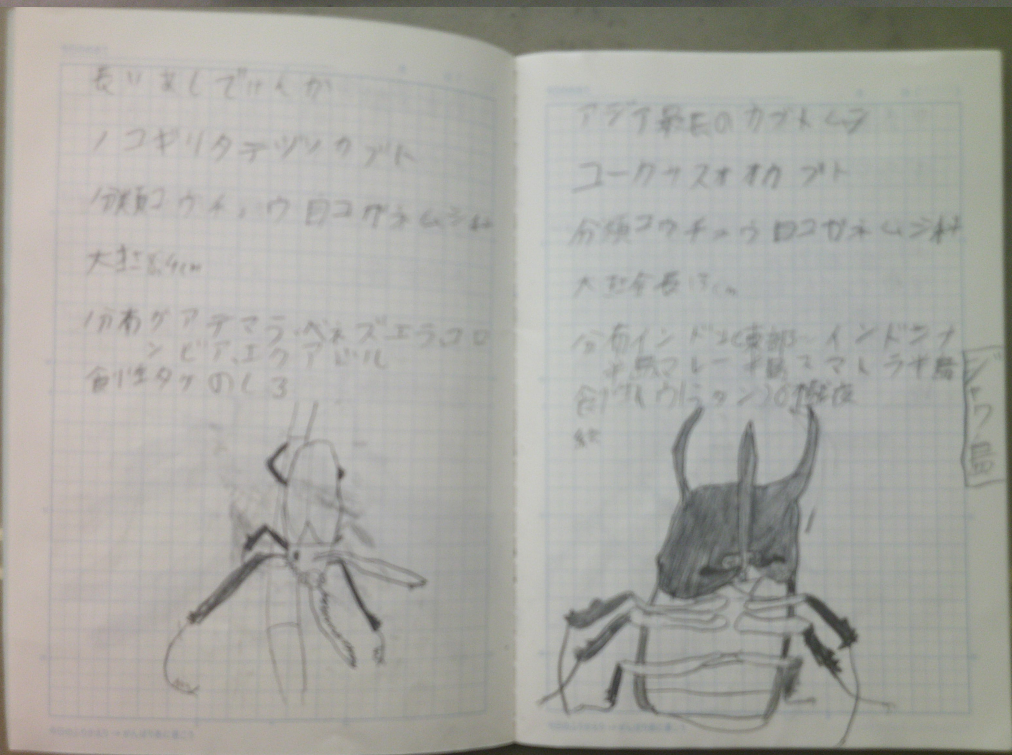 長い あしでけんか
ノコギリタテヅノカブト
分類コウチュウ目コガネムシ科
大型8.4cm
分布グアテマラ、ベネズエラ、コロ
ンビア、エクアドル
食性タケのしる
アジア最大のカブトムシ
コーカサスオオカブト
分類コウチュウ目コガネムシ科
大型全長13cm
分布インド北東部、インドシナ
半島マレー半島スマトラ島
ジャワ島